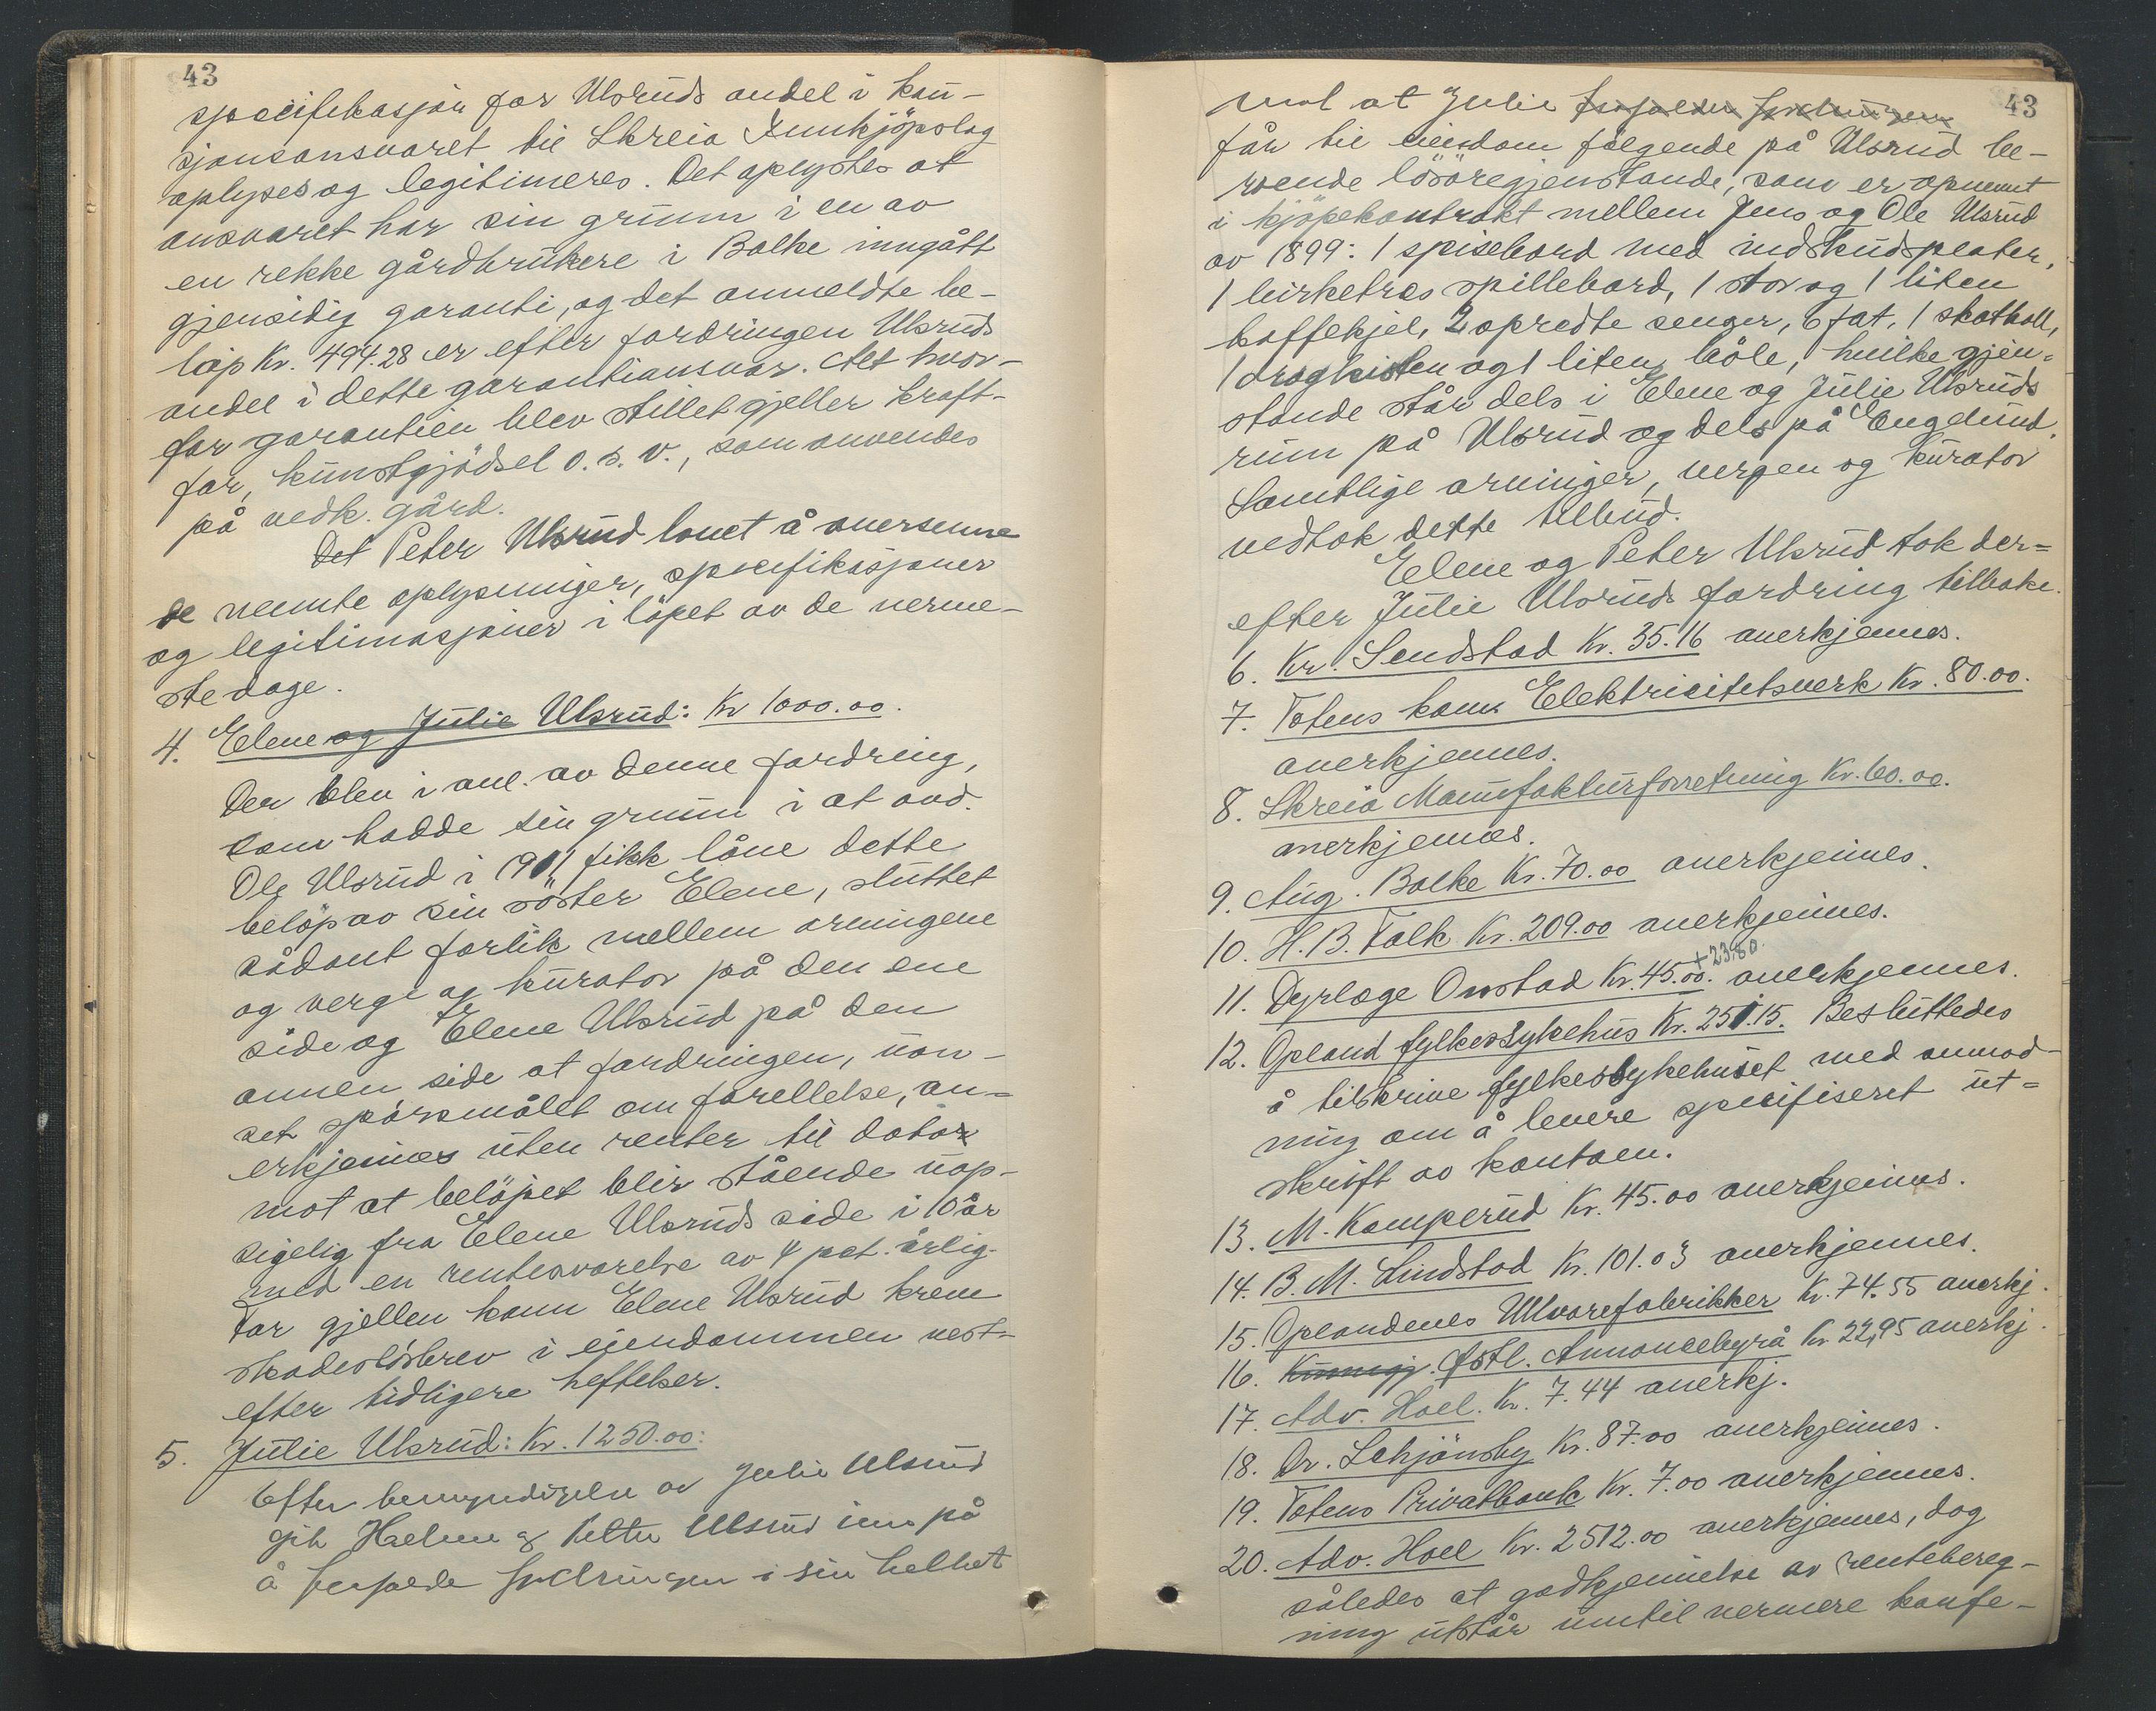 43
spesifikasjon for Ulsruds andel i kau-
sjonsansvaret til Skreia Innkjöpslag
oplyses og legitimeres. Det oplystes at
ansvaret har sin grunn i en av
en rekke gårdbrukere i Balke inngått
gjensidig garanti, og det anmeldte be-
löp Kr. 494.28 er efter fordringen Ulsruds
andel i dette garantiansvar. Det hvor-
for garantien blev stillet gjeller kraft-
for, kunstgjödsel o. s. v., som anvendes
på vedk. gård.
Det Peter Ulsrud lovet å oversenne
de nevnte oplysninger, spesifikasjoner
og legitimasjoner i löpet av de nerme-
ste dage.
4. Elene og Julie Ulsrud: Kr 1000.00.
Der blev i anl. av denne fordring,
som hadde sin grunn i at avd.
Ole Ulsrud i 1911 fikk låne dette
belöp av sin söster Elene, sluttet
sådant forlik mellem arvingene
og verge og kurator på den ene
side og Elene Ulsrud på den
annen side at fordringen, uan-
set spörsmålet om forellelse, an-
erkjennes uten renter til dato
mot at belöpet blir stående uop-
sigelig fra Elene Ulsruds side i 10 år
med en rentesvarelse av 4 pct. årlig.
For gjellen kann Elene Ulsrud kreve
skadeslösbrev i eiendommen nest-
efter tidligere heftelser.
5. Julie Ulsrud: Kr. 1250.00:
Efter bemyndigelse av Julie Ulsrud
gik Helene og Petter Ulsrud inn på
å frafalde fordringen i sin helhet
43
mot at Julie frafalder fordringen
får til eiendom fölgende på Ulsrud be-
roende lösöregjenstande, som er opnevnt
i kjöpekontrakt mellem Jens og Ole Ulsrud
av 1899: 1 spisebord med indskudsplater,
1 birketræs spillebord, 1 stor og 1 liten
kaffekjel, 2 opredte senger, 6 fat, 1 skatholl,
1 dragkisten og 1 liten böle, hvilke gjen-
stande står dels i Elene og Julie Ulsruds
rum på Ulsrud og dels på Englund.
Samtlige arvinger, vergen og kurator
vedtok dette tilbud.
Elene og Peter Ulsrud tok der-
efter Julie Ulsruds fordring tilbake.
6. Kr. Sendstad Kr. 35.16 anerkjennes.
7. Totens kom. Elektricitetsverk Kr. 80.00.
anerkjennes.
8. Skreia Manufakturforretning Kr. 60.00.
anerkjennes.
9. Aug. Balke Kr. 70.00 anerkjennes.
10. H. B. Falk Kr. 209.00 anerkjennes.
+ 23,80.
11. Dyrlæge Onstad Kr. 45.00. anerkjennes.
12. Opland fylkessykehus Kr. 251.15. Besluttedes
å tilskrive fylkessykehuset med anmod-
ning om å levere spesifiseret ut-
skrift av kontoen.
13. M. Kamperud Kr. 45.00 anerkjennes.
14. B. M. Lindstad Kr. 101.03 anerkjennes.
15. Oplandenes Ullvarefabrikker Kr. 74.55 anerkj.
16. Kunngj. Östl. Annoncebyrå Kr. 22,95 anerkj.
17. Adv. Hoel. Kr. 7.44 anerkj.
18. Dr. Schjönsby Kr. 87.00 anerkjennes.
19. Totens Privatbank Kr. 7.00 anerkjennes.
20. Adv. Hoel Kr. 2512.00 anerkjennes, dog
således at godkjennelse av rentebereg-
ning utstår inntil nermere konfe-